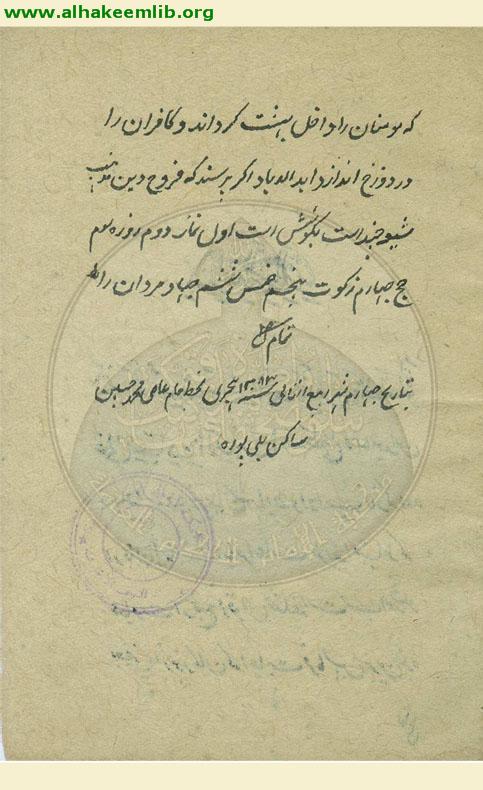 www.alhakeemlib.org
که مومنان را داخل بهشت کرداند و کافران را
در دوزخ اندازد ابد الاباد اکر پرسند که فروع دین مذهب
شیعه چند است بکو شش است اول نماز دوم روزه سوم
حج چهارم زکوت پنجم خمس ششم جهاد مردان را
تمام شد
بتاریخ چهارم شهر ربیع الثانی سنه هجری بخط خام عاصی محمد حسین
ساکن پلی پواره